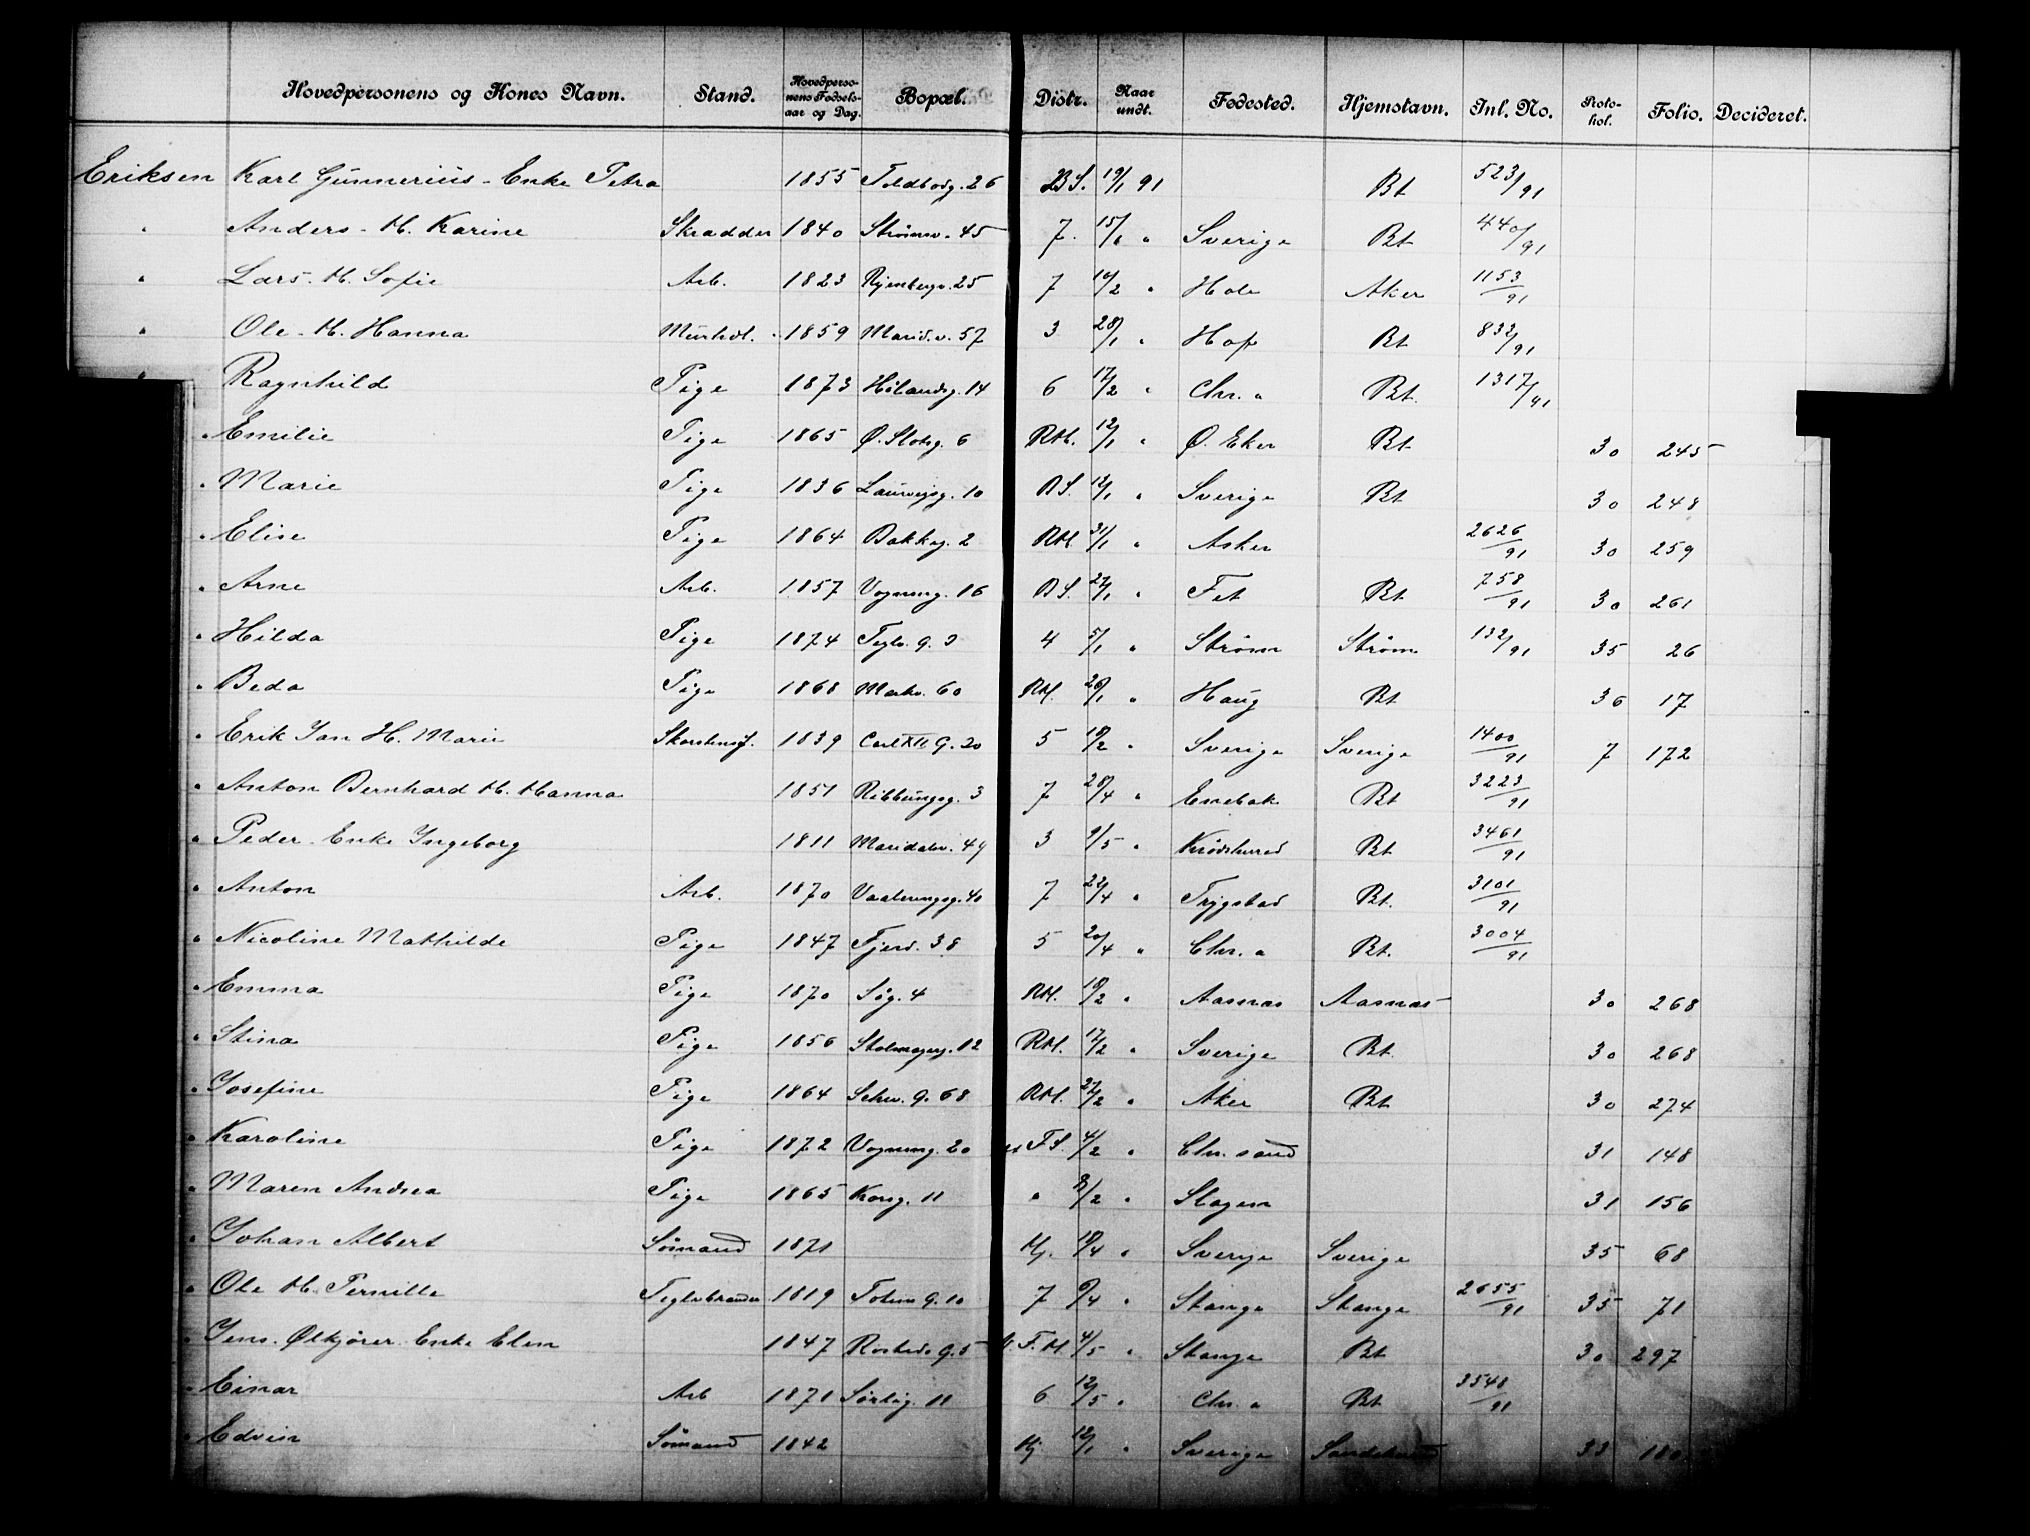 Hovedpersonens og Kones Navn. Stand. Hovedpersonens Fødselsaar og Dag. Bopæl. Distr. Naar undt. Fødested. Hjemstavn. Inl. No. Protokol. Folio. Decideret.
Eriksen Karl Gunnerius - Enke Petra 1855 Toldbodg. 26 B.S. 19/1 91 Bt 523/91
" Anders - H. Karine Skradder 1840 Strømsv. 45 7. 15/1 " Sverige Bt 440/91
" Lars - H. Sofie Arb. 1823 Ryenbergv. 25 7 14/2 " Hole Aker 1153/91
" Ole - H. Hanna Murhdl. 1859 Marid.v. 57 3 28/1 " Hof Bt 832/91
" Ragnhild Pige 1873 Hølandsg. 14 6 17/2 " Chr. a Bt. 1317/91
" Emilie Pige 1865 Ø. Slotsg. 6 RH. 12/1 " Ø. Eker Bt 30 245
" Marie Pige 1836 Laurvigsg. 10 B.S. 12/1 " Sverige Bt 30 248
" Elise Pige 1864 Bakkeg. 2 RH. 31/1 " Asker 2626/91 30 259
" Arne Arb. 1857 Vognmg. 16 B.S. 27/1 " Fet Bt 758/91 30 261
" Hilda Pige 1874 Teglv. g. 3 4 5/1 " Strøm Strøm 132/91 35 26
" Beda Pige 1868 Markv. 60 RH. 26/1 " Haug Bt 36 17
" Erik Jan H. Marie Skorstensf. 1839 Carl XII G. 20 5 18/2 " Sverige Sverige 1400/91 7 172
" Anton Bernhard H. Hanna 1851 Ribbungsg. 3 7 28/4 " Enebak Bt 3223/91
" Peder - Enke Ingeborg 1811 Maridalsv. 49 3 9/5 " Krødsherred Bt 3461/91
" Anton Arb. 1870 Vaalerengsg. 40 7 22/4 " Trygstad Bt. 3101/91
" Nicoline Mathilde Pige 1847 Fjerd. 38 5 20/4 " Chr. a Bt. 3004/91
" Emma Pige 1870 Søg. 4 RH. 18/2 " Aasnas Aasnas 30 268
" Stina Pige 1856 Stolmagerg. 12 RH. 17/2 " Sverige Bt. 30 268
" Josefine Pige 1864 Schw. g. 68 RH. 27/2 " Aker Bt 30 274
" Karoline Pige 1872 Vognmg. 20 F.S. 4/2 " Chr. sand 31 148
" Maren Andrea Pige 1865 Korsg. 11 " 8/2 " Slagen 31 156
" Johan Albert Sømand 1871 Hj. 18/4 " Sverige Sverige 35 68
" Ole H. Pernille Teglvbrander 1819 Toiens G. 10 7 9/4 " Stange Stange 2655/91 35 71
" Jens - Ølkjører - Enke Elen 1847 Rosteds G. 5 F.H. 4/5 " Stange Bt 30 297
" Einar Arb 1871 Sørlig. 11 6 12/5 " Chr. a Bt 3548/91
" Edvin Sømand 1842 Hj 12/1 " Sverige 33 180